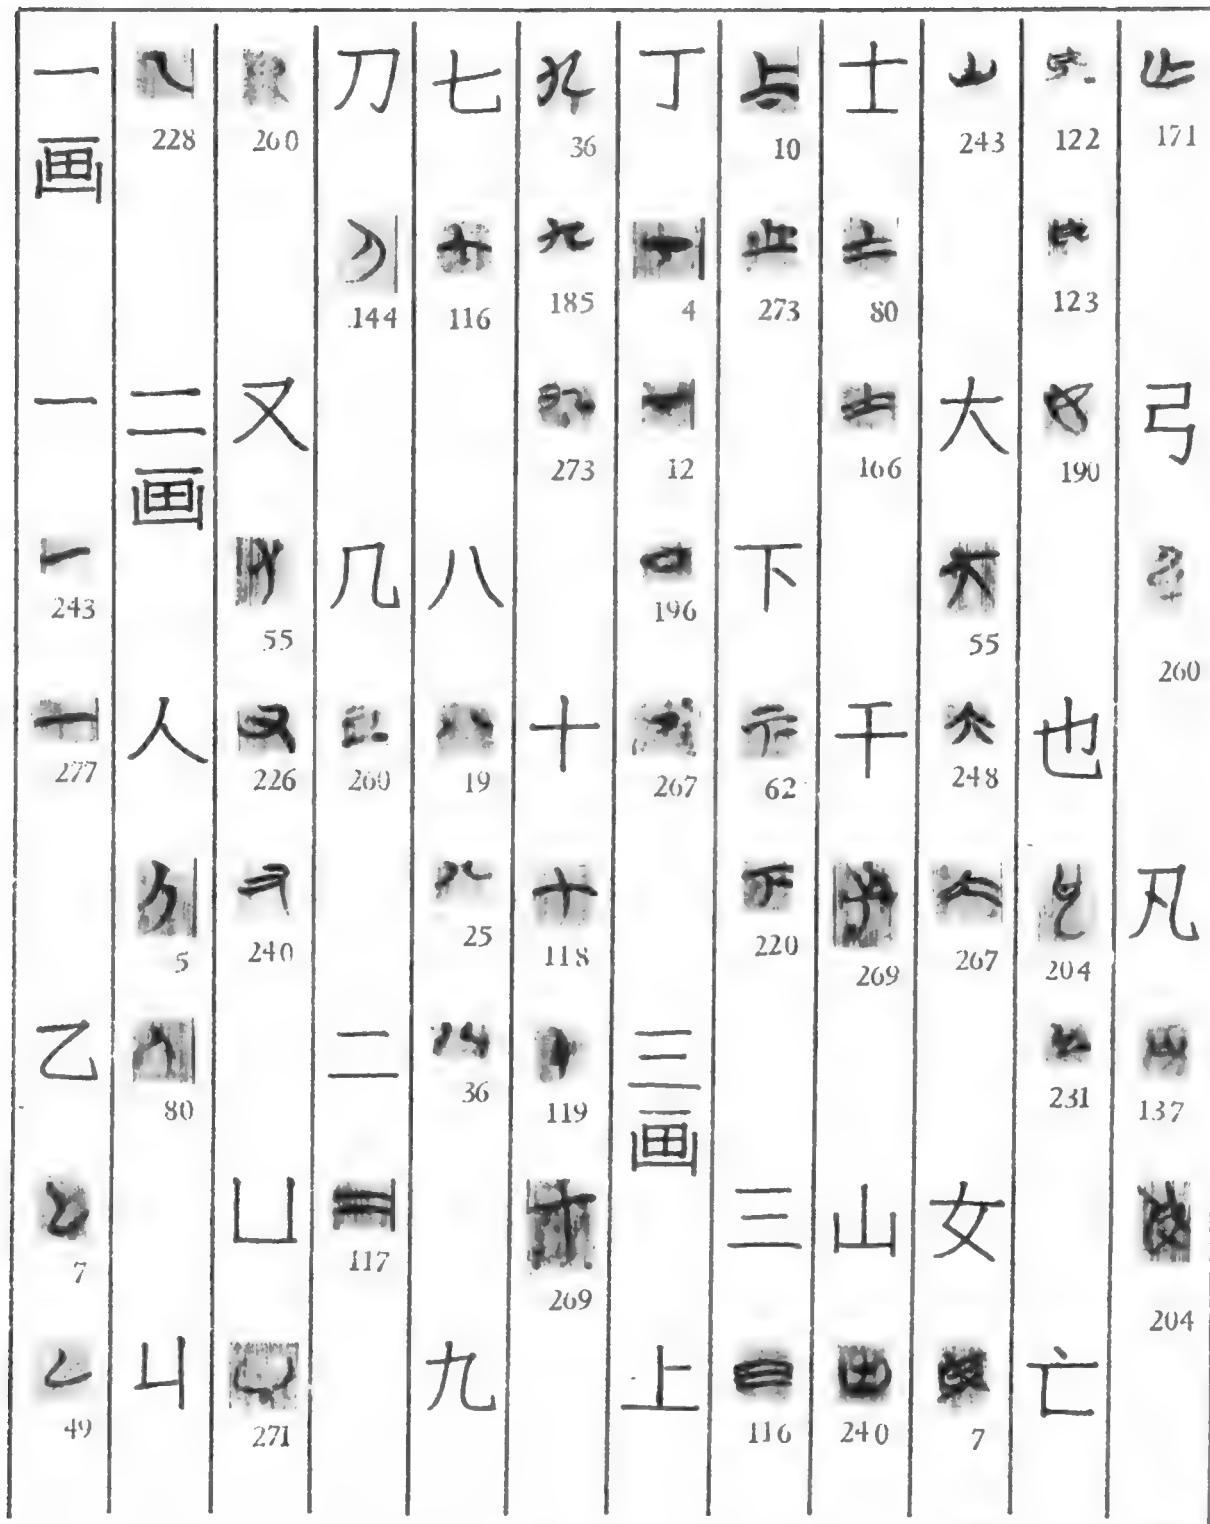 一画 一 243 277 乙 7 49
228 二画 人 5 80 丩
260 又 55 226 240 凵 271
刀 144 几 260 二 117
七 116 八 19 25 36 九
36 185 273 十 118 119 269
丁 4 12 196 267 三画 上
10 273 下 62 220 三 116
士 80 166 干 269 山 240
243 大 55 248 267 女 7
122 123 190 也 204 231 亡
171 弓 260 凡 137 204